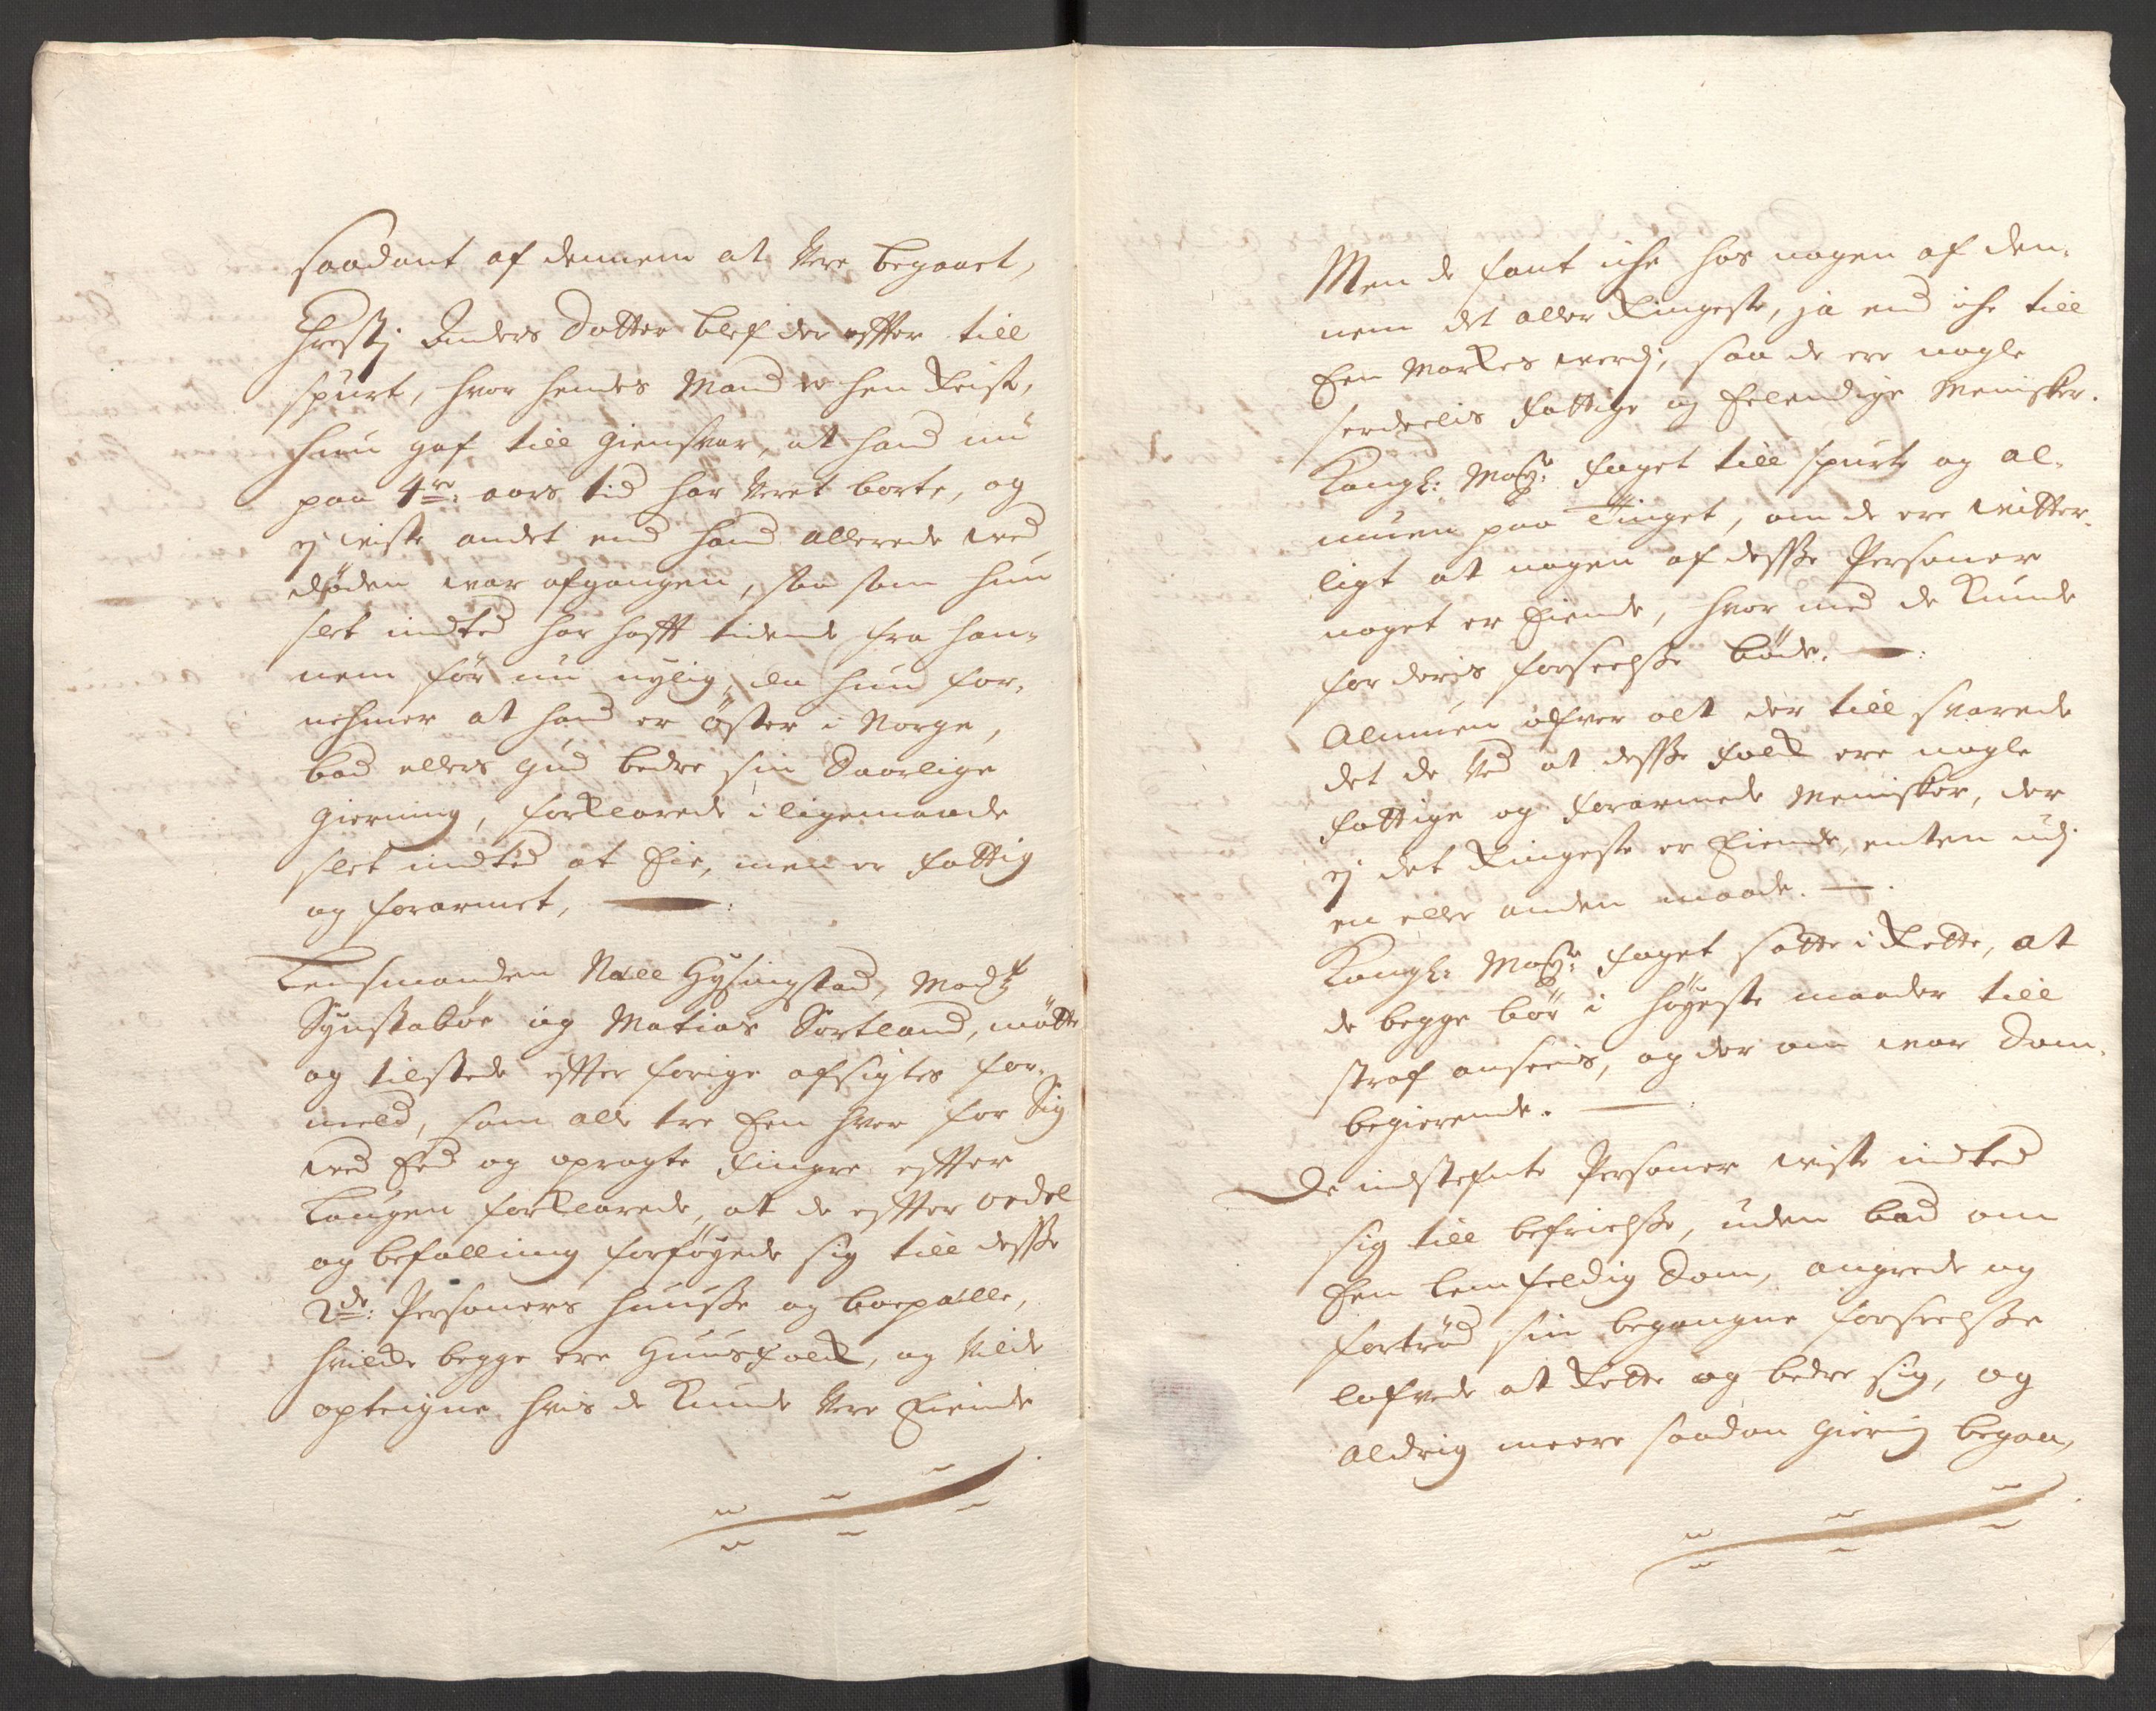 saadant af dennem at være begaaet,
Giersti Anders Datter blef der effter till
spurt, hvor hendes Mand er hen Reist,
hun gaf till giensvar, at hand nu
paa 4re: aars tid har veret borte, og
ej viste andet end hand allerede ved
døden var afgangen, saa som hun
slet indted har hafft tidende fra han-
nem før nu nylig, da hun for-
nehmer at hand er øster i Norge,
bad ellers Gud bedre sin Daarlige
gierning, forklarede i ligemaade
slet indted at Eie, men er fattig
og forarmet,
Lensmanden Niell Hysingstad, Madtz
Synstabøe og Matias Sortland, møtte
og tilstede effter forige afsigtes for-
meld, som alle tre Een hver for Sig
ved Eed og opragte fingre effter
Laugen forklarede, at de effter ordel
og befalling forføyede sig till desse
2de: Personers huusse og boepælle,
hvilcke begge ere Huusfolck, og vilde
opteigne hvis de kunde være Eiende
Men de fant iche hos nogen af den-
nem det aller Ringeste, ja end iche till
Een Markes verdj, saa de ere nogle
serdeelis fattige og Elendige Menisker.
Kongl: Maÿtz: foget till spurte og al-
muen paa Tinget, om de ere vitter-
ligt at nogen af desse Personer
noget er Eiende, hvor med de kunde
for deris forseelsse bøde.
Almuen offver alt der till svarede
det de ved at desse folck ere nogle
fattige og forarmede Menisker, der
ej det Ringeste er Eiende, enten udj
en eller anden maade.
Kongl: Maÿtz: foget satte i Rette, at
de begge bør i høyeste maader till
straf anseeis, og der om var Dom-
begierende.
De indstefnte Personer viste indted
sig till befrielsse, uden bad om
Een lemfeldig Dom, angrede og
fortrød sin begangne forseelsse
lofvede at Rette og bedre sig, og
Aldrig meere saadan giering begaa,